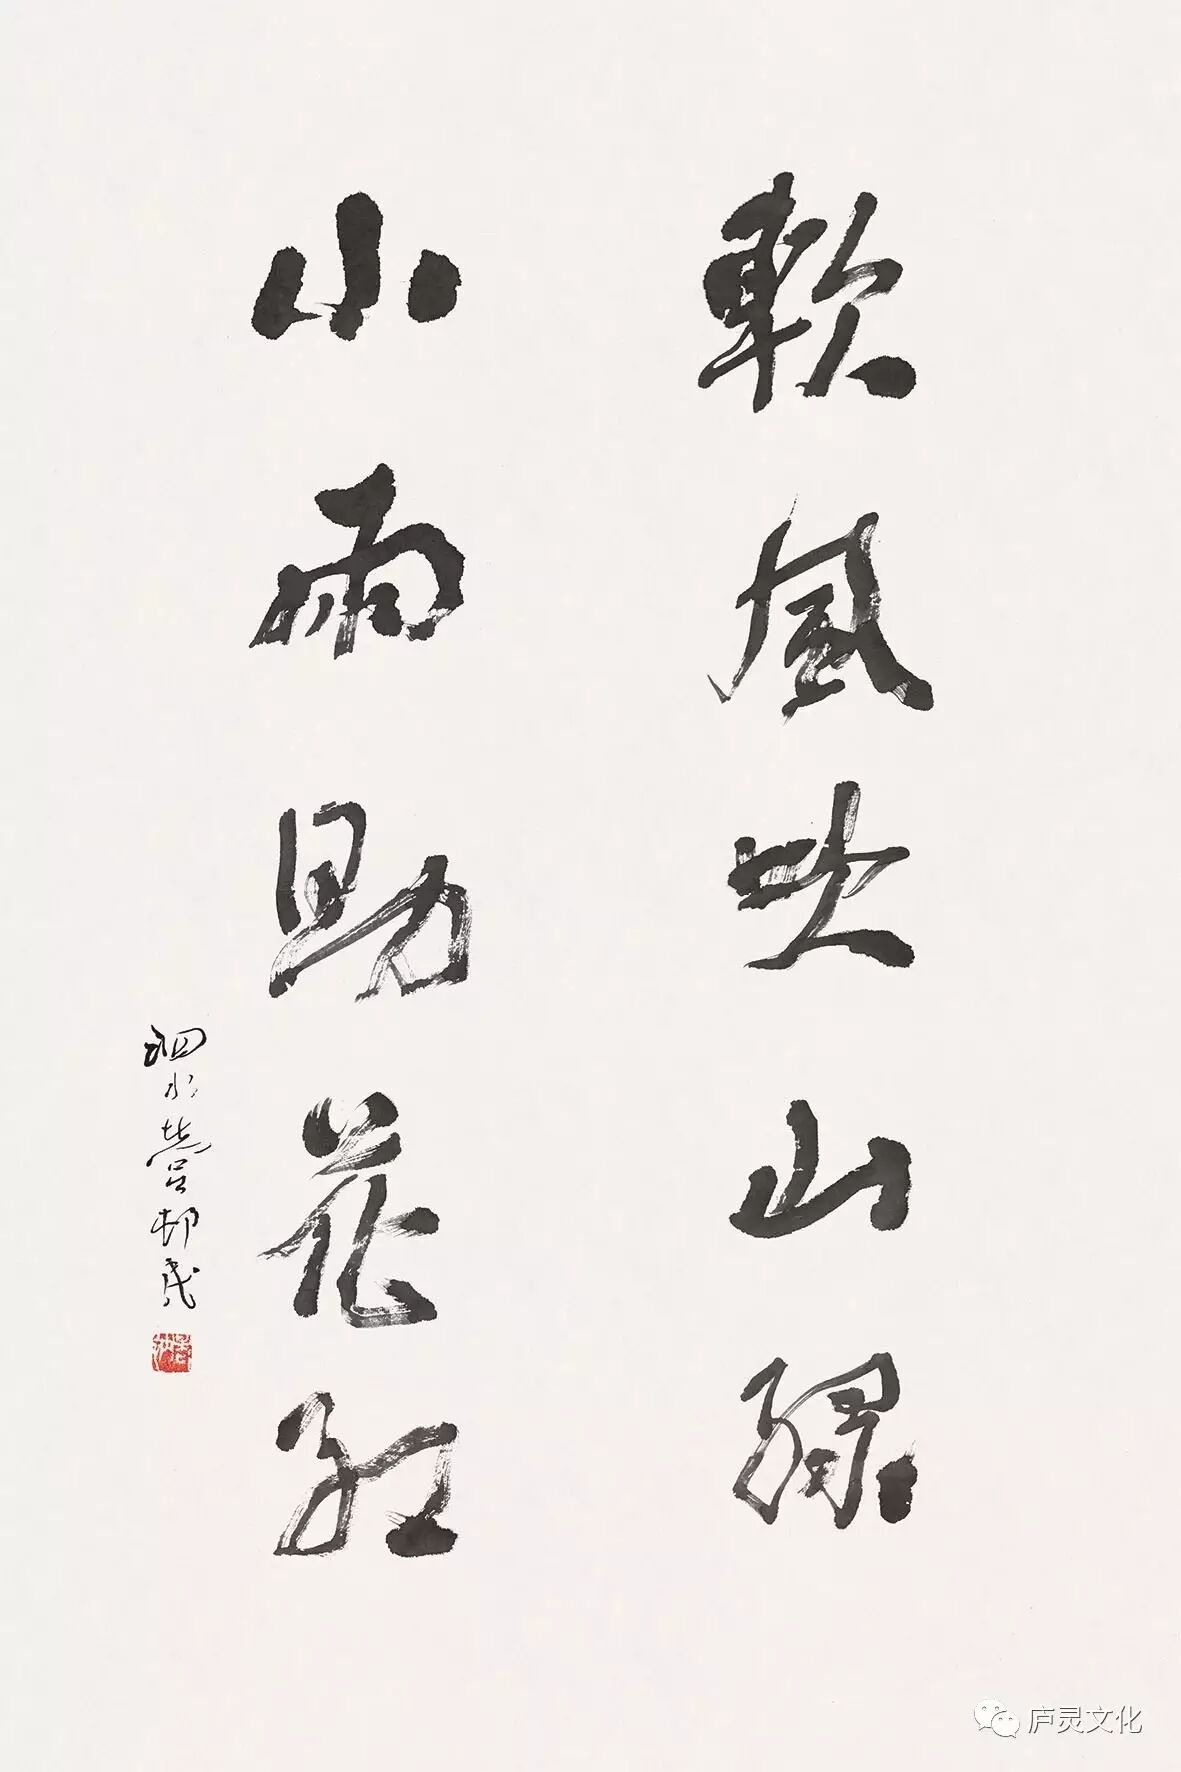 軟風吹山緑
小雨助花紅
泗水營邨民
庐灵文化